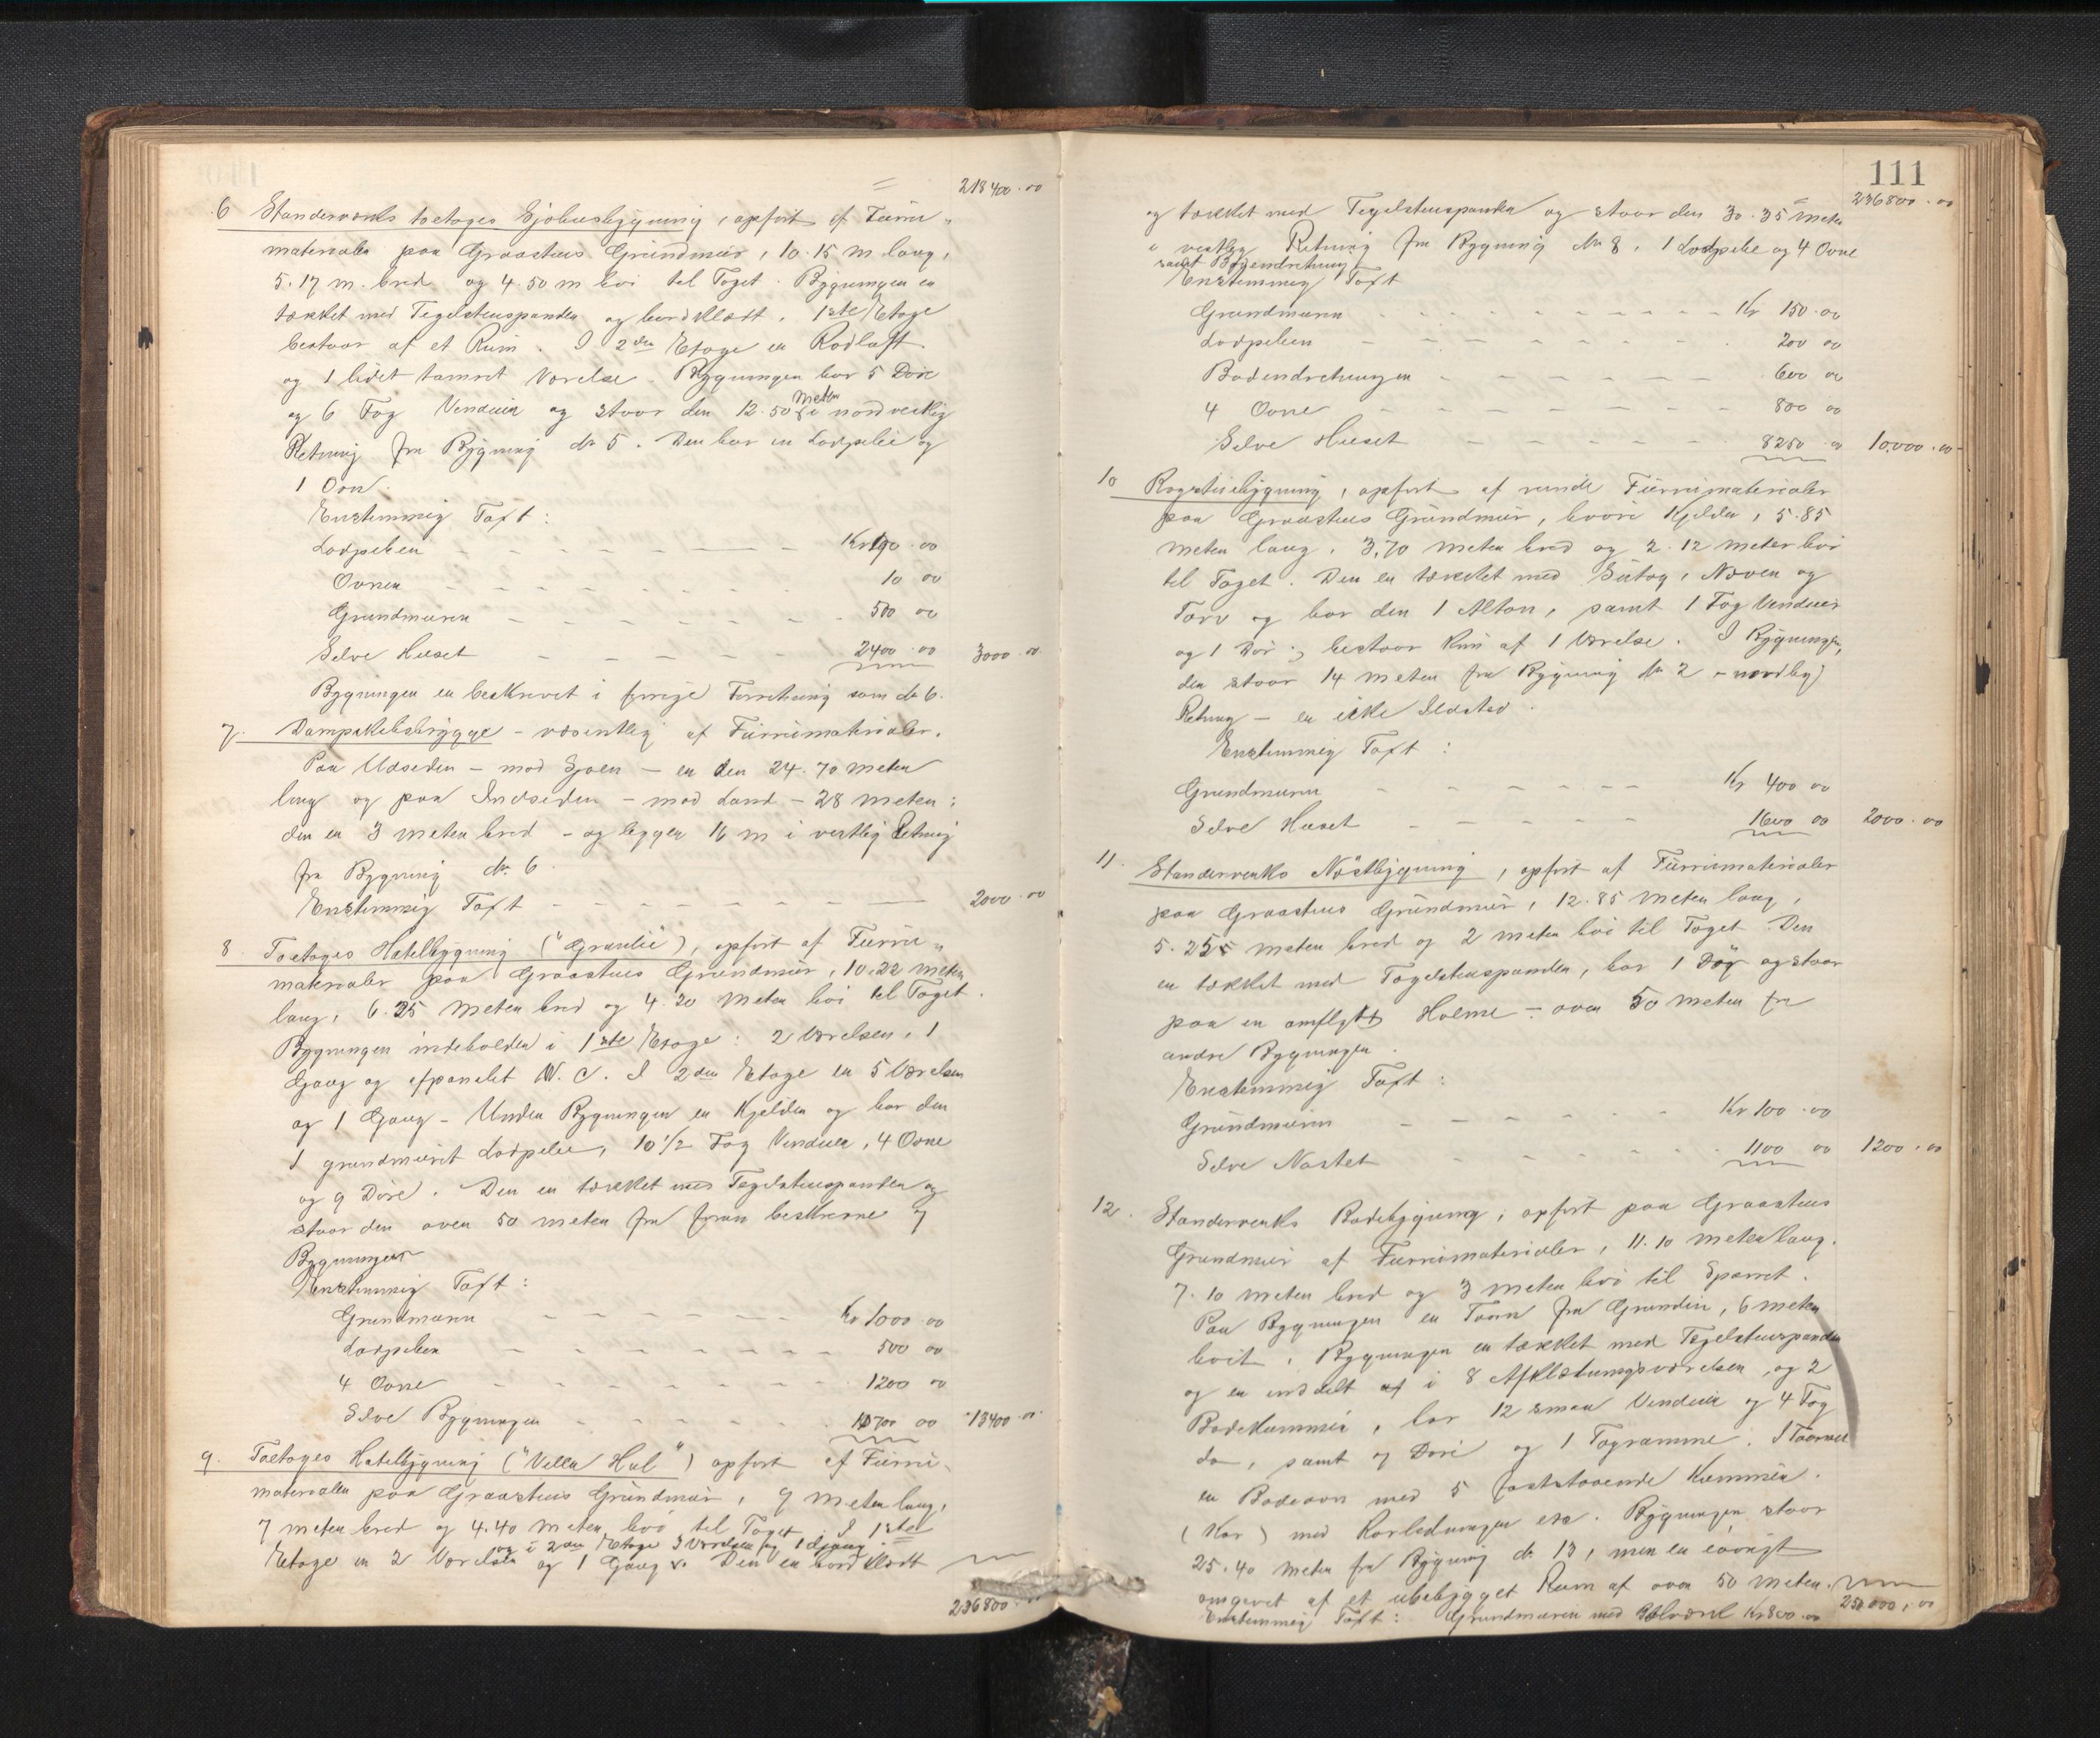 218400.00
6 Standerværks toetages Sjøhusbygning, opført af Furru-
materialer paa Graastens Grundmur, 10.15 m. lang,
5.17 m. bred og 4.50 m høi til Taget. Bygningen er
tækket med Teglstenspander og bordklædt. 1ste Etage
bestaar af et Rum. I 2den Etage er Rodloft
og 1 lidet tømret Værelse. Bygningen har 5 Døre
og 6 Fag Venduer og staar den 12.50 meter i nordvestlig
Retning fra Bygning No 5. Den har en Lodpibe og
1 Ovn.
Enstemmig Taxt:
Lodpiben Kr 90.00
Ovnen 10 00
Grundmuren 500 00
Selve Huset 2400.00 3000.00
Bygningen er beskrevet i forrige Forretning som No 6.
7. Dampskibsbrygge - væsentlig af Furrumaterialer.
Paa Udsiden - mod Sjøen - er den 24.70 meter
lang og paa Indsiden - mod Land - 28 meter;
den er 3 meter bred - og ligger 16 m i vestlig Retning
fra Bygning No 6.
Enstemmig Taxt 2000.00
8. Toetages Hotelbygning ("Granlie"), opført af Furru-
materialer paa Graastens Grundmur, 10.22 meter
lang, 6.25 meter bred og 4.20 meter høi til Taget.
Bygningen indeholder i 1ste Etage: 2 Værelser, 1
Gang og afpanelet W. C. I 2den Etage er 5 Værelser
og 1 Gang - Under Bygningen er Kjelder og har den
1 grundmuret Lodpibe, 10 1/2 Fag Venduer, 4 Ovne
og 9 Døre. Den er tækket med Teglstenspander og
staar den over 50 meter fra foran beskrevne 7
Bygninger
Enstemmig Taxt:
Grundmuren Kr 1000.00
Lodpiben 500 00
4 Ovne 1200 00
Selve Bygningen 10700 00 13400.00
9. Toetages Hotelbygning ("Villa Hul") opført af Furru-
materialer paa Graastens Grundmur, 9 meter lang,
7 meter bred og 4.40 meter høi til Taget. I 1ste
og i 2den Etage 3 Værelser og 1 Gang.
Etage er 2 Værelser og 1 Gang. Den er bordklædt
236800.00
111
236800.00
og tækket med Teglstenspander og staar den 30.35 meter
i vestlig Retning fra Bygning No 8, 1 Lodpibe og 4 Ovne
samt
Enstemmig Taxt
Grundmuren Kr 150.00
Lodpiben 200 00
Badendretningen 600 00
4 Ovne 800 00
Selve Huset 8250 00 10,000.00
10 Røgstuebygning, opført af runde Furrumaterialer
paa Graastens Grundmur, hvori Kjelder, 5.85
meter lang, 3,70 meter bred og 2.12 meter høi
til Taget. Den er tækket med Sutag, Næver og
Torv og har den 1 Altan, samt 1 Fag Venduer
og 1 Dør; bestaar kun af 1 Værelse. I Bygningen,
den staar 14 meter fra Bygning No 2 - nordlig
Retning - er ikke Ildsted.
Enstemmig Taxt:
Grundmuren Kr 400 00
Selve Huset 1600 00 2000.00
11. Standerværks Nöstbygning, opført af Furrumaterialer
paa Graastens Grundmur, 12.85 meter lang,
5.25 meter bred og 2 meter høi til Taget. Den
er tækket med Teglstenspander, har 1 Dør og staar
paa en omflydt Holme - over 50 meter fra
andre Bygninger.
Enstemmig Taxt:
Grundmuren Kr 100.00
Selve Nøstet 1100 00 1200.00
12. Standerværks Badebygning, opført paa Graastens
Grundmur af Furrumaterialer, 11.10 meter lang,
7.10 meter bred og 3 meter høi til Sparret.
Paa Bygningen er Taarn fra Grunden, 6 meter
høit. Bygningen er tækket med Teglstenspander
og er inddelt i 8 Afklædningsværelser, og 2
Badekummer, har 12 smaa Venduer og 4 Fag
do, samt 7 Døre og 1 Tagramme. I Taarnet
er Badeovn med 5 faststaaende Kummer
(Kar) med Rørledninger etc. Bygningen staar
25.40 meter fra Bygning No 13, men er iøvrigt
omgivet af et ubebygget Rum af over 50 meter.
Enstemmig Taxt: Grundmuren med Kr 800.00 250000,00